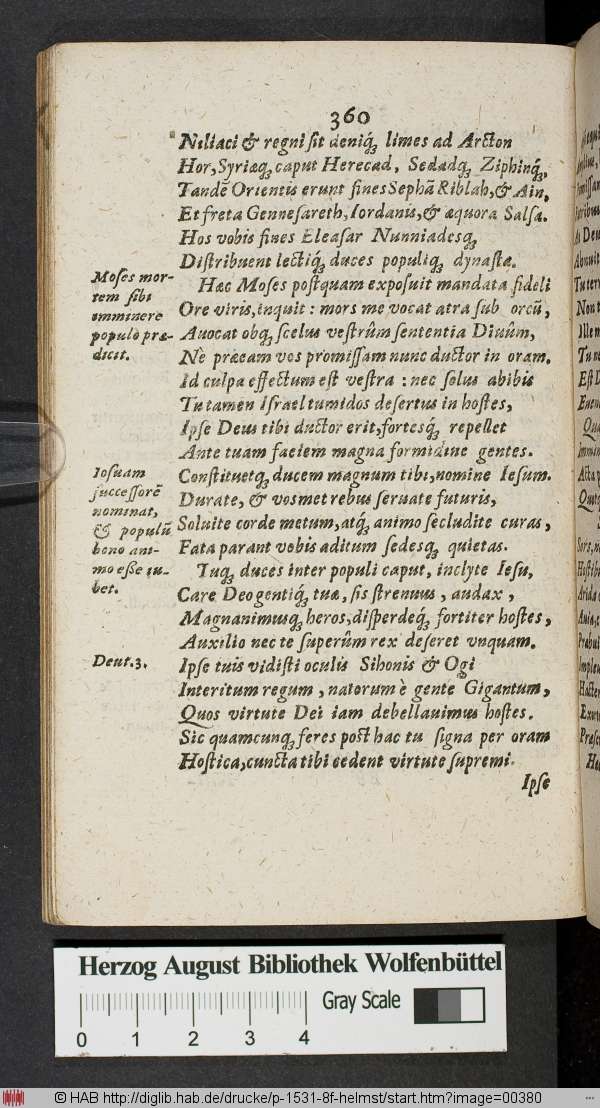 360
Niliaci & regni sit deniq́ꝫ limes ad Arcton
Hor, Syriæqꝫ caput Herecad, Sedadqꝫ Ziphinq́ꝫ,
Tandẽ Orientis erunt fines Sephã Riblah, & Ain,
Et freta Gennesareth, Iordanis, & æquora Salsa.
Hos vobis fines Eleasar Nunniadesqꝫ
Distribuent lectiq́ꝫ duces populiqꝫ dynastæ.
Moses mor-
tem sibi
imminere
populo præ-
dicit.
Hæc Moses postquam exposuit mandata fideli
Ore viris, inquit: mors me vocat atra sub orcũ,
Auocat obqꝫ scelus vestrûm sententia Diuûm,
Ne præeam vos promissam nunc ductor in oram.
Id culpa effectum est vestra: nec solus abibis
Tu tamen Israel tumidos desertus in hostes,
Ipse Deus tibi ductor erit, fortesq́ꝫ repellet
Ante tuam faciem magna formidine gentes.
Iosuam
successorẽ
nominat,
& populũ
bono ani-
mo esse iu-
bet.
Constituetqꝫ ducem magnum tibi, nomine Iesum.
Durate, & vosmet rebus seruate futuris,
Soluite corde metum, atqꝫ animo secludite curas,
Fata parant vobis aditum sedesqꝫ quietas.
Tuqꝫ duces inter populi caput, inclyte Iesu,
Care Deo gentiqꝫ tuæ, sis strenuus, audax,
Magnanimusqꝫ heros, disperdeqꝫ fortiter hostes,
Auxilio nec te superûm rex deseret vnquam.
Deut. 3.
Ipse tuis vidisti oculis Sihonis & Ogi
Interitum regum, natorum è gente Gigantum,
Quos virtute Dei iam debellauimus hostes.
Sic quamcunqꝫ feres post hac tu signa per oram
Hostica, cuncta tibi cedent virtute supremi
Ipse
Herzog August Bibliothek Wolfenbüttel
Gray Scale
0 1 2 3 4
© HAB http://diglib.hab.de/drucke/p-1531-8f-helmst/start.htm?image=00380